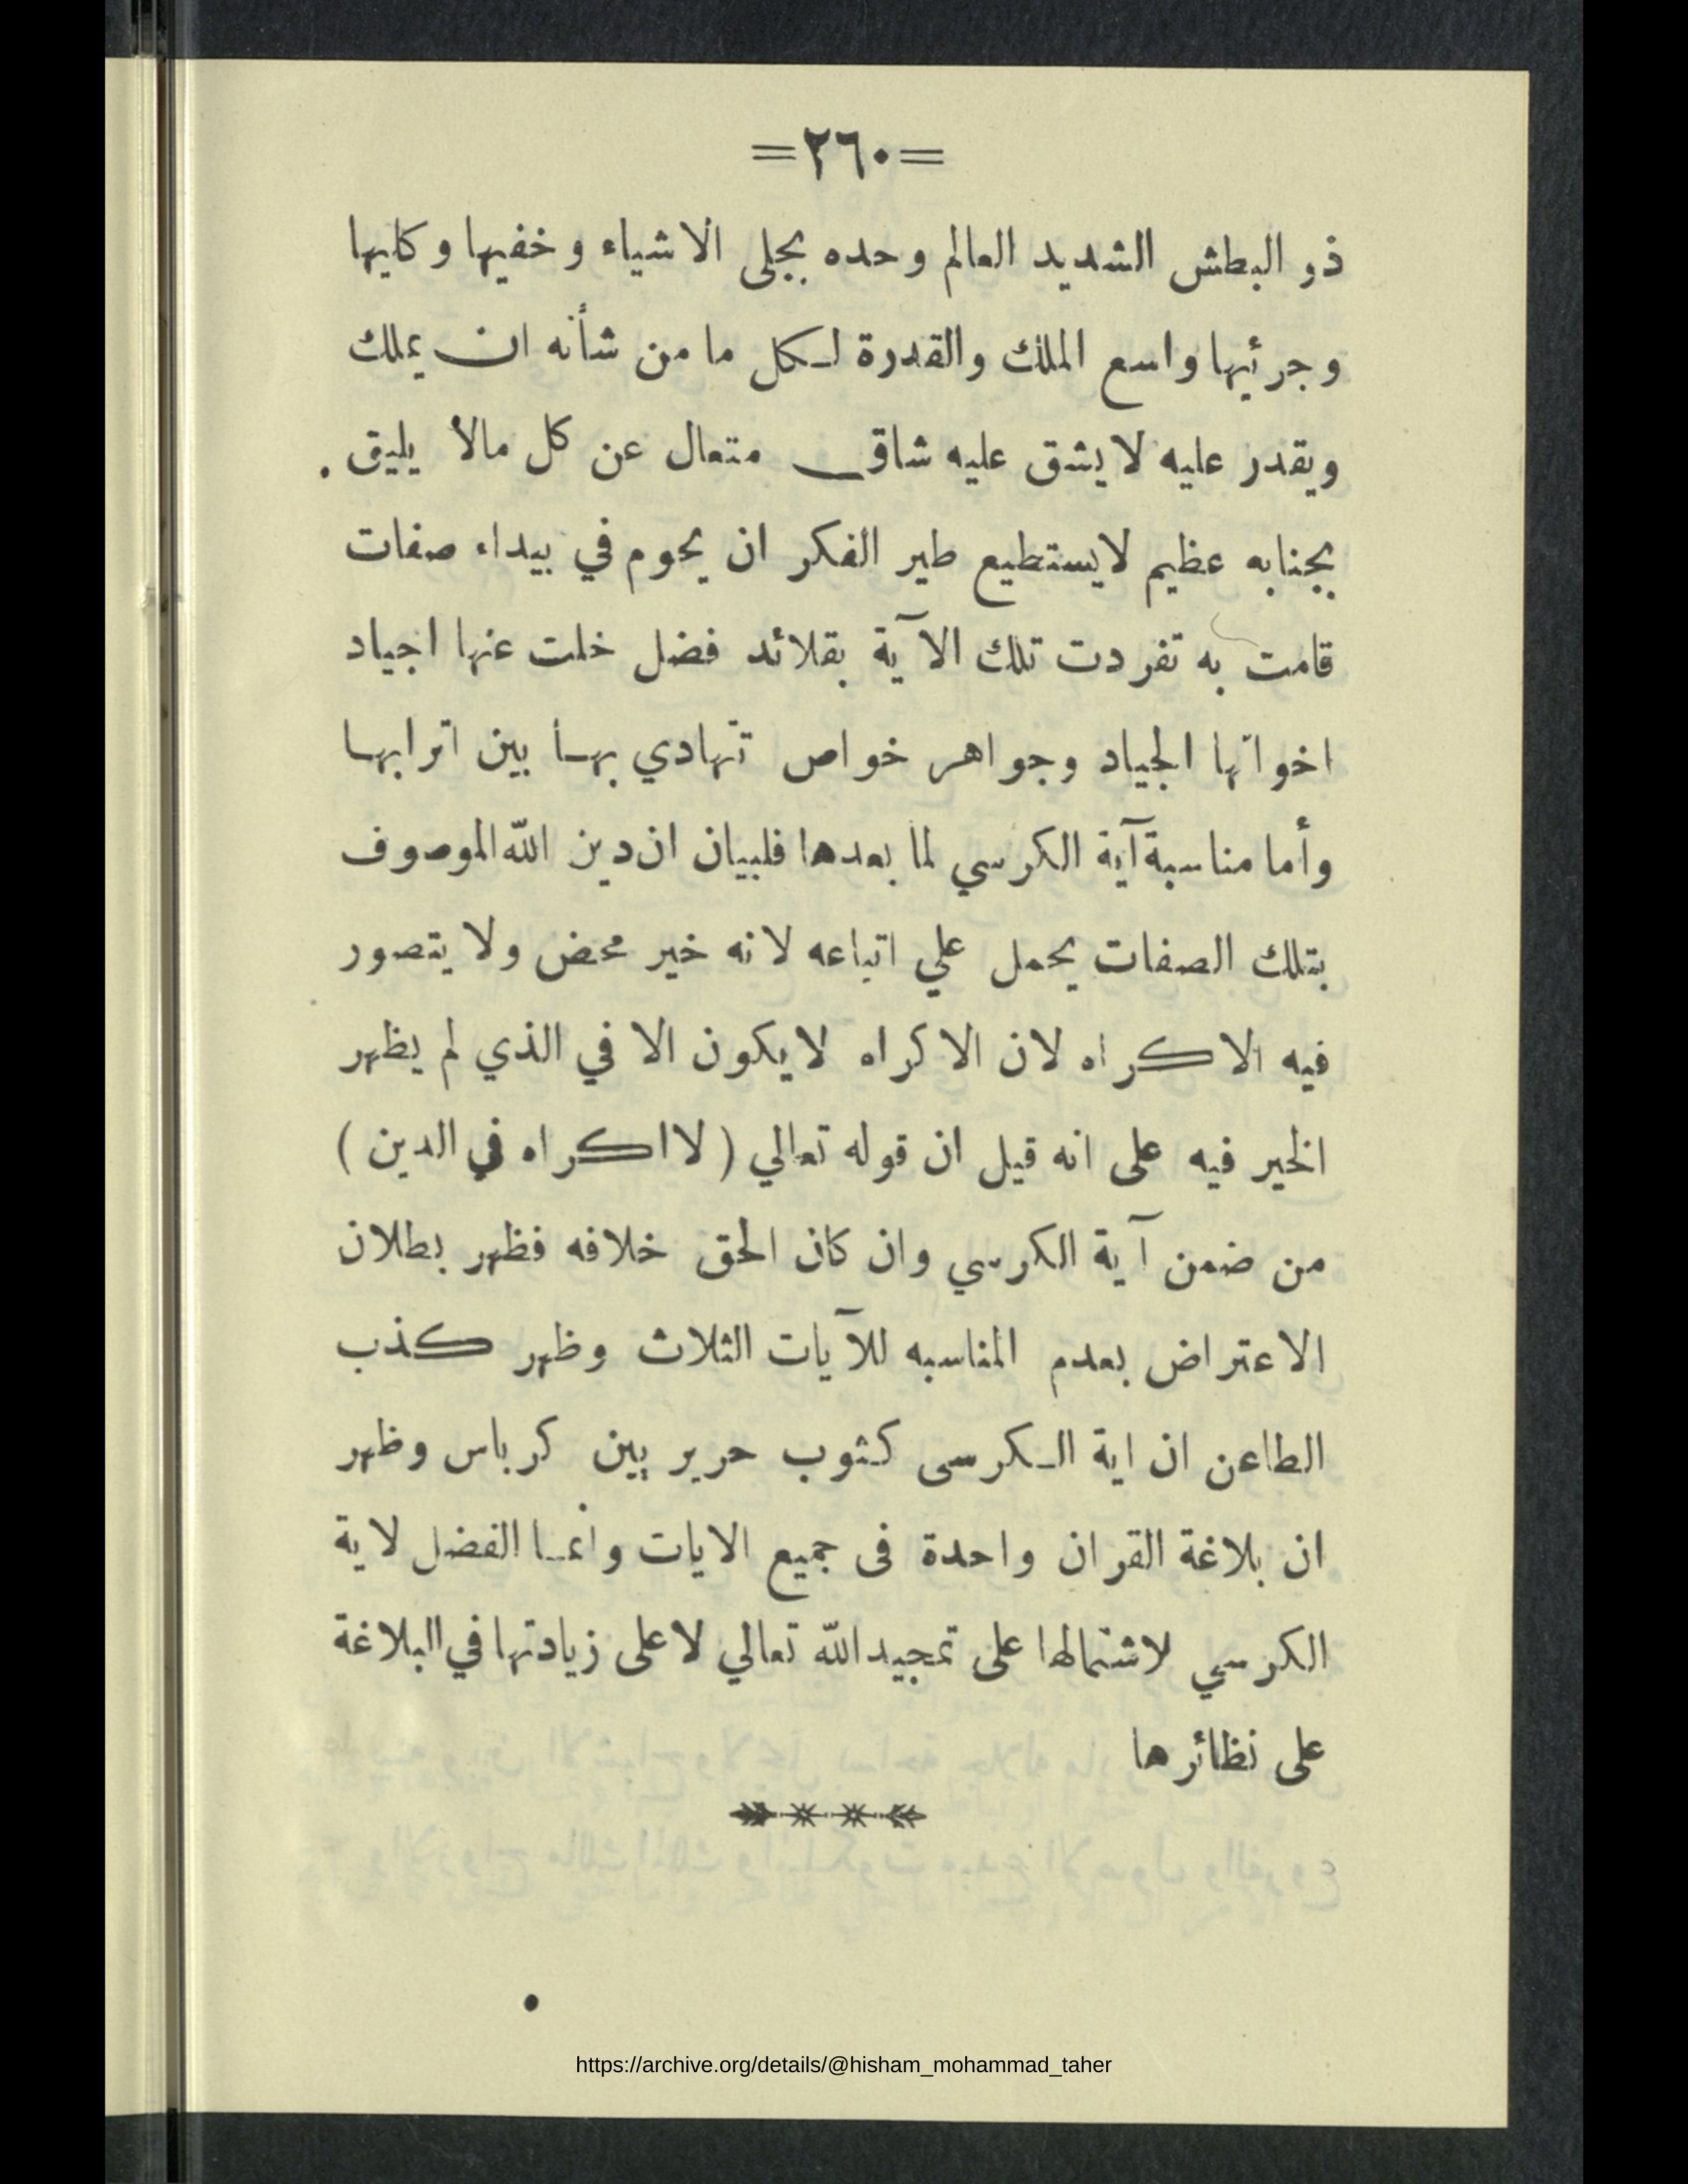 =٢٦٠=
ذو البطش الشديد العالم وحده بجلى الاشياء وخفيها وكليها
وجرئيها واسع الملك والقدرة لكل ما من شأنه ان يملك
ويقدر عليه لا يشق عليه شاق متعال عن كل مالا يليق .
بجنابه عظيم لايستطيع طير الفكر ان يحوم في بيداء صفات
قامت به تفردت تلك الآية بقلائد فضل خلت عنها اجياد
اخواتها الجياد وجواهر خواص تتهادي بها بين اترابها
وأما مناسبة آية الكرسي لما بعدها فلبيان ان دين الله الموصوف
بتلك الصفات يحمل علي اتباعه لانه خير محض ولا يتصور
فيه الاكراه لان الاكراه لايكون الا في الذي لم يظهر
الخير فيه على انه قيل ان قوله تعالي ( لااكراه في الدين )
من ضمن آية الكرسي وان كان الحق خلافه فظهر بطلان
الاعتراض بعدم المناسبه للآيات الثلاث وظهر كذب
الطاعن ان اية الكرسى كثوب حرير بين كرباس وظهر
ان بلاغة القران واحدة فى جميع الايات وانما الفضل لاية
الكرسي لاشتمالها على تمجيد الله تعالي لا على زيادتها في البلاغة
على نظائرها
https://archive.org/details/@hisham_mohammad_taher